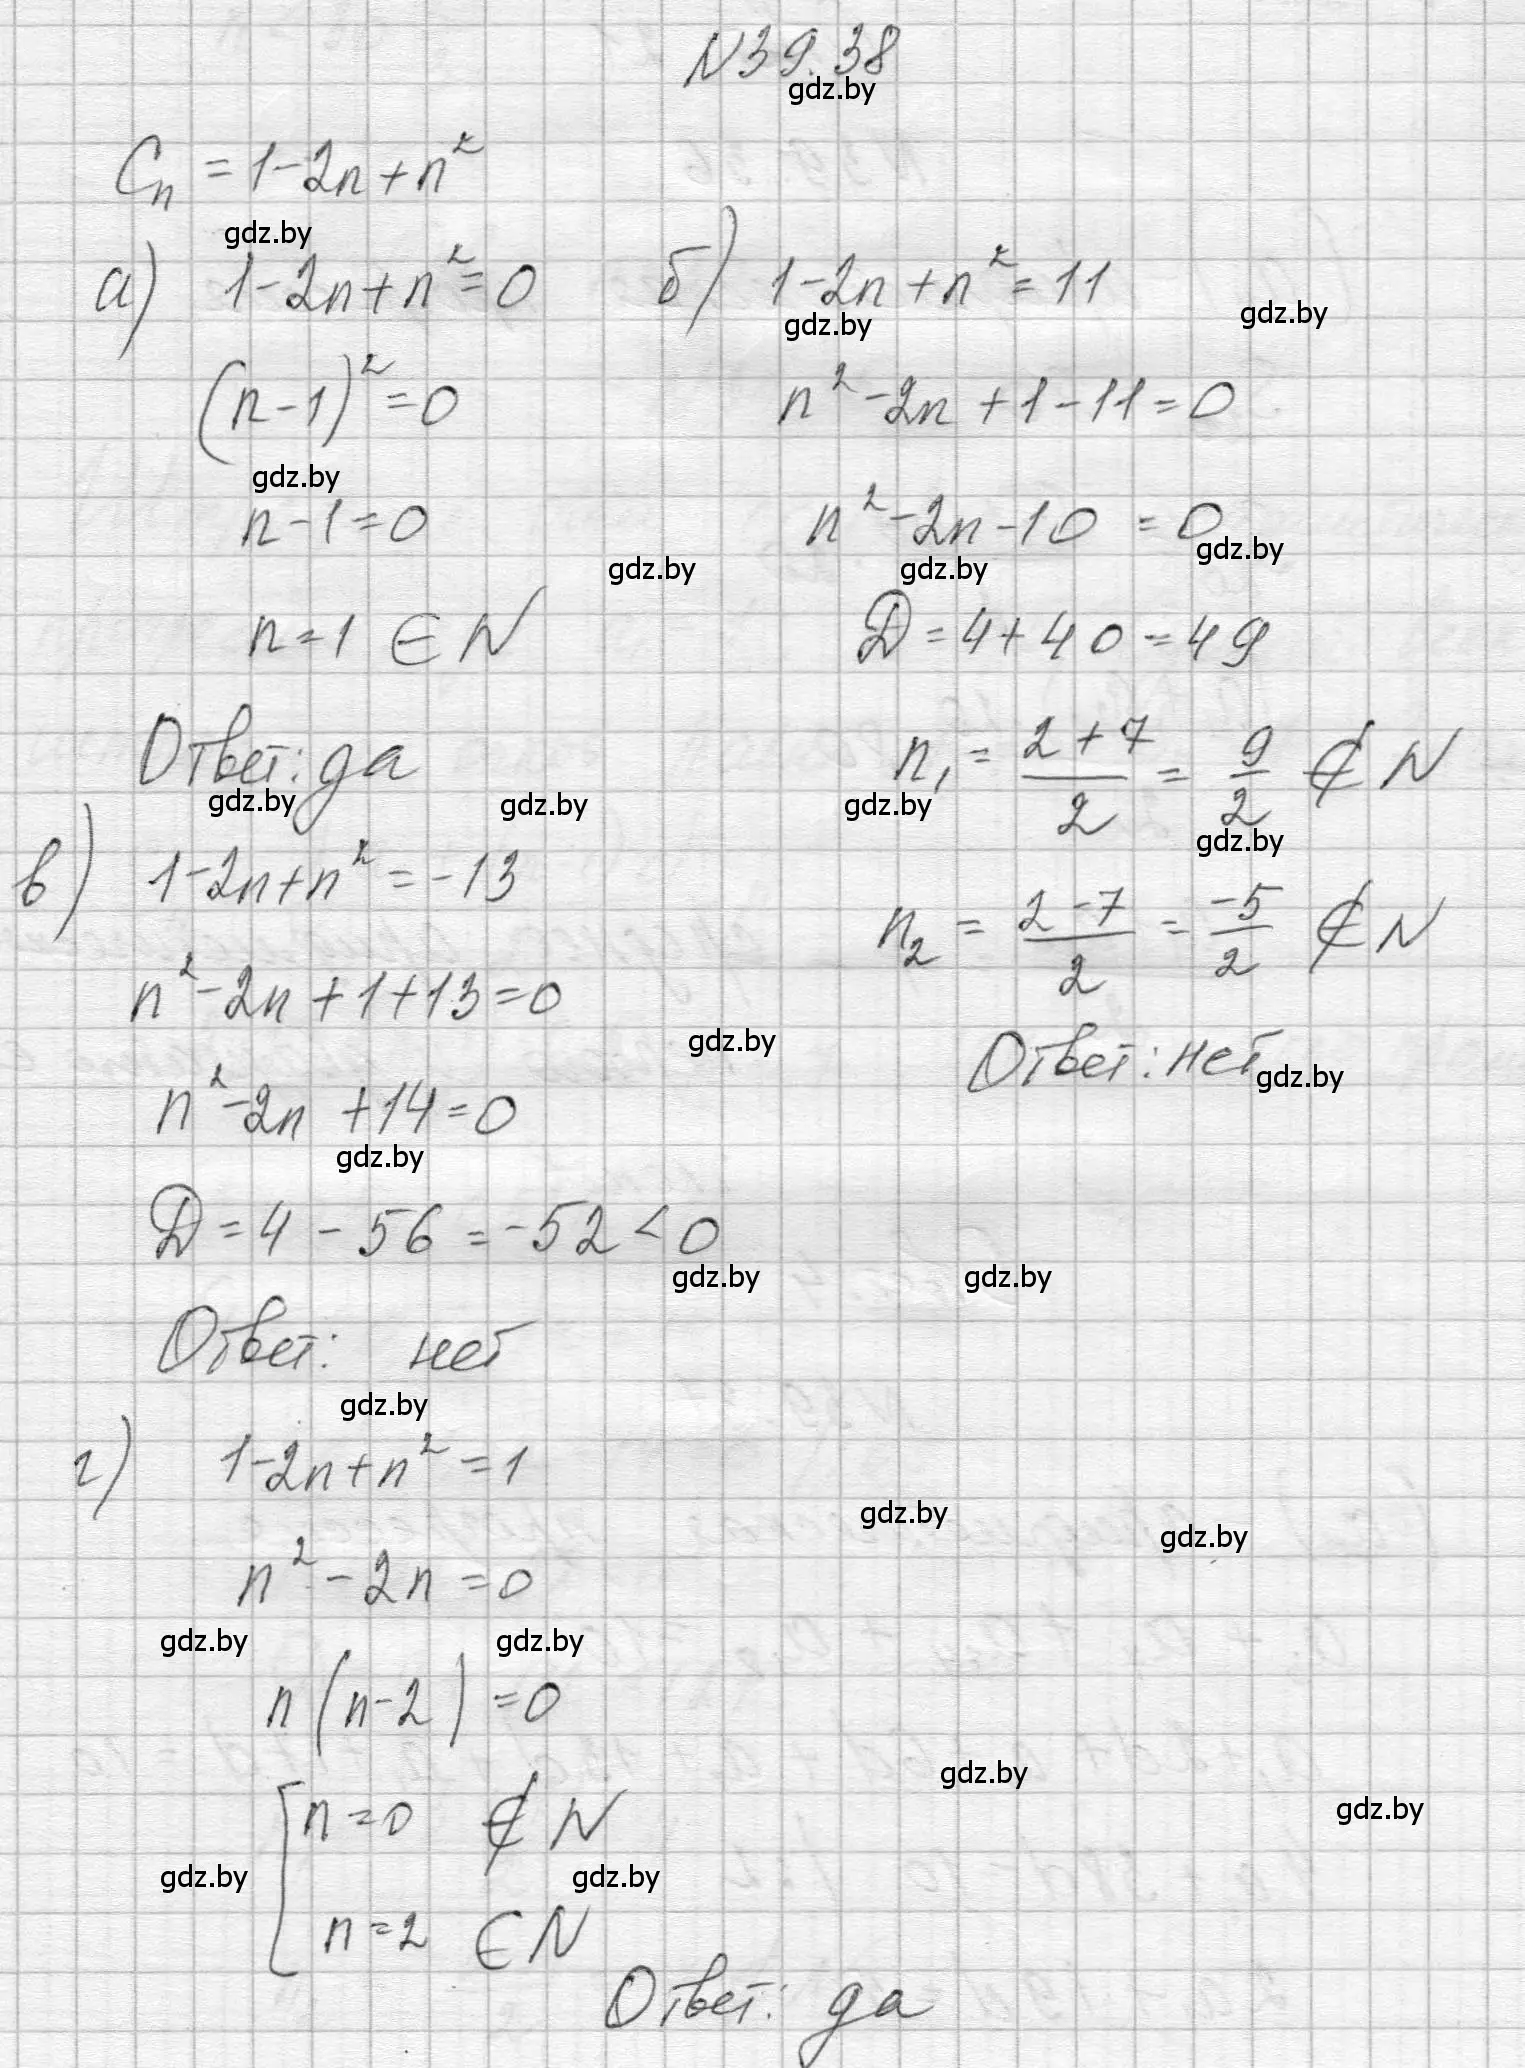 N39.38
gdz.by
Cₙ = 1-2n+n²
gdz.by
а) 1-2n+n²=0
(n-1)²=0
gdz.by
n-1=0
gdz.by
n=1 ∈ N
Ответ: да
gdz.by gdz.by
б) 1-2n+n²=11
gdz.by gdz.by
n²-2n+1-11=0
n²-2n-10=0
gdz.by gdz.by
D=4+40=49
n₁ = (2+7)/2 = 9/2 ∉ N
gdz.by gdz.by
n₂ = (2-7)/2 = -5/2 ∉ N
Ответ: нет
gdz.by
в) 1-2n+n²=-13
n²-2n+1+13=0
gdz.by
n²-2n+14=0
gdz.by
D=4-56=-52<0
gdz.by gdz.by
Ответ: нет
gdz.by
г) 1-2n+n²=1
gdz.by gdz.by
n²-2n=0
gdz.by gdz.by
n(n-2)=0
gdz.by gdz.by
[ n=0 ∉ N
gdz.by gdz.by
n=2 ∈ N
Ответ: да